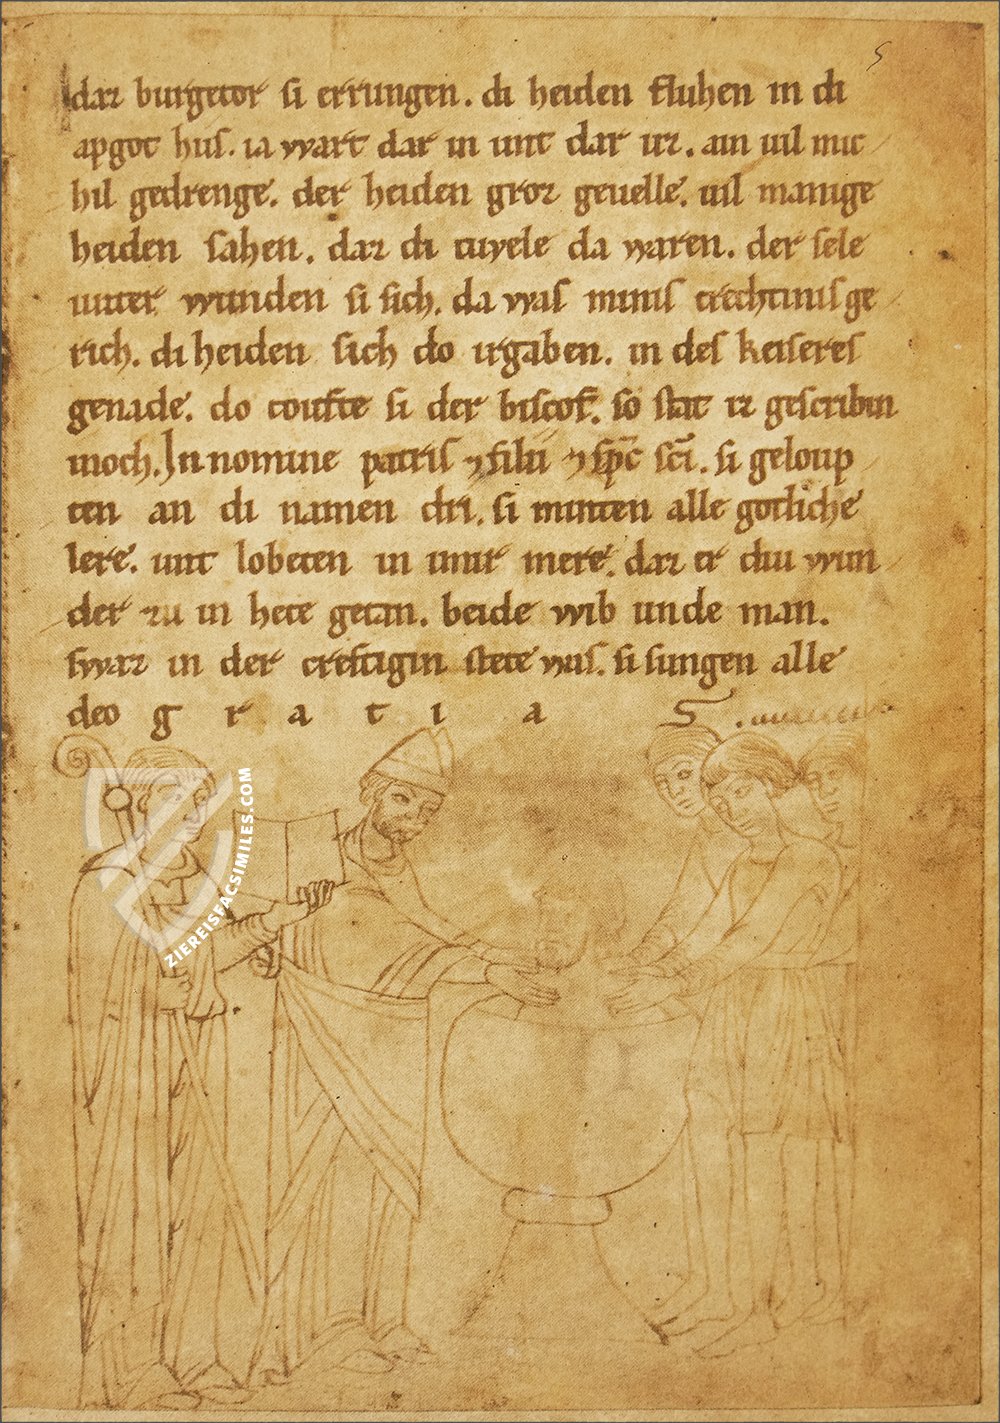 5
daz burgetor si errungen. di heiden fluhen in di
apgot hus. ia wart dar in unt dar uz. ain uil mic
hil gedrenge. der heiden groz geuelle. uil manige
heiden sahen. daz di tuvele da waren. der sele
unter wunden si sich. da was minis trechtinis ge
rich. di heiden sich do irgaben. in des keiseres
genade. do toufte si der biscof. so stat iz gescribin
inoch. In nomine patris ⁊ filii ⁊ sp̄c sc̄i. si geloup
ten an di namen dri. si minten alle gotliche
lere. unt lobeten in imir mere. daz er diu wun
der zu in hete getan. beide wib unde man.
swaz in der crestigin stete was. si sungen alle
deo g r a t i a S.
ZIEREISFACSIMILES.COM